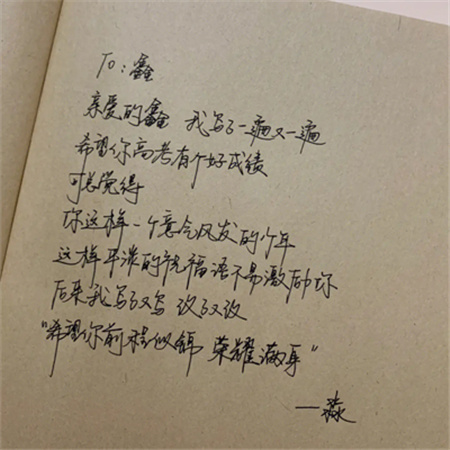 To:鑫
亲爱的鑫 我写了一遍又一遍
希望你高考有个好成绩
可总觉得
你这样一个意气风发的少年
这样平淡的祝福语不易激励你
后来我写了又写 改了又改
“希望你前程似锦 荣耀满身”
—淼